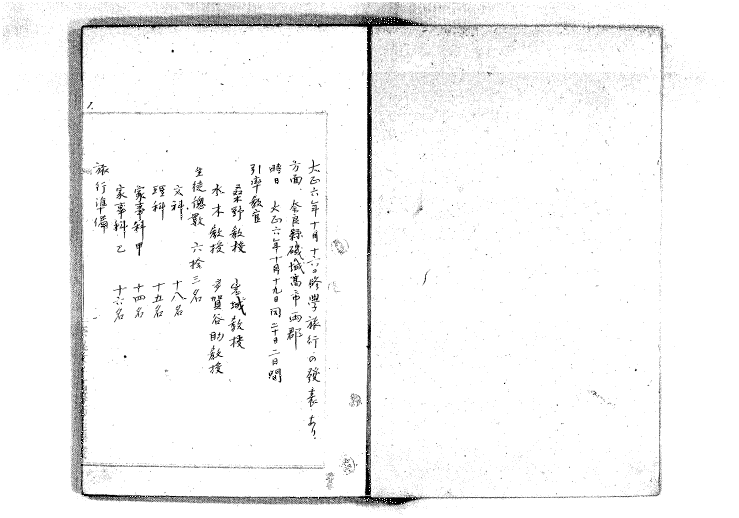 大正六年十月十六日修學旅行の發表あり、
方面、奈良縣磯城高市両郡
時日 大正六年十月十九日同二十日二日間
引率教官
桑野教授 岩城教授
水木教授 多賀谷助教授
生徒總數 六拾三名
文科 十八名
理科 十五名
家事科甲 十四名
家事科乙 十六名
旅行準備